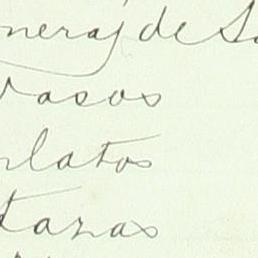 neraj de Sa
vasos
platos
tazas